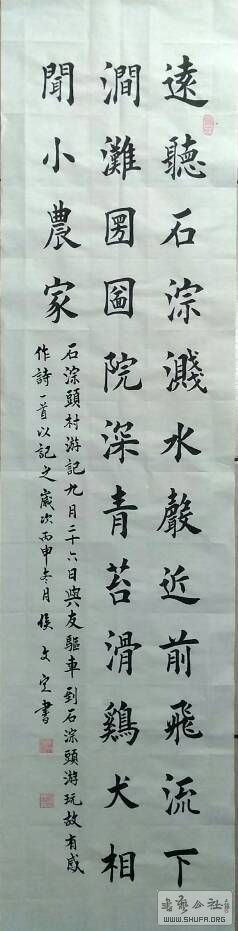 遠聽石淙濺水聲近前飛流下
澗灘圐圙院深青苔滑鷄犬相
聞小農家
石淙頭村游記九月二十六日與友驅車到石淙頭游玩故有感
作詩一首以記之歲次丙申冬月侯文定書
書藝公社
WWW.SHUFA.ORG